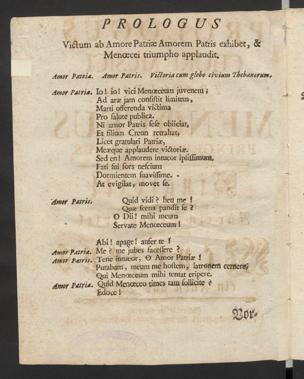 PROLOGUS
Victum ab Amore Patriæ Amorem Patris exhibet, &
Menœcei triumpho applaudit.
Amor Patriæ. Amor Patris. Victoria cum globo civium Thebanorum.
Amor Patriæ. Io! io! vici Menœceum juvenem;
Ad aræ jam consistit limitem,
Marti offerenda victima
Pro salute publica.
Ni amor Patris sese objiciat,
Et filium Creon retrahat,
Licet gratulari Patriæ,
Meæque applaudere victoriæ.
Sed en! Amorem intueor ipsissimum,
Fati sui fors nescium
Dormientem suavissime.
At evigilat, movet se.
Amor Patris. Quid vidi? heu me!
Quæ scena pandit se?
O Dii! mihi meum
Servate Menœceum!
Abi! apage! aufer te!
Amor Patriæ. Me? me jubes facessere?
Amor Patris. Tene intueor, O Amor Patriæ!
Putabam, metam me hostem, latronem cernere,
Qui Menœceum mihi tentat eripere.
Amor Patriæ. Quid Menœceo times tam sollicite?
Edoce!
Vor-